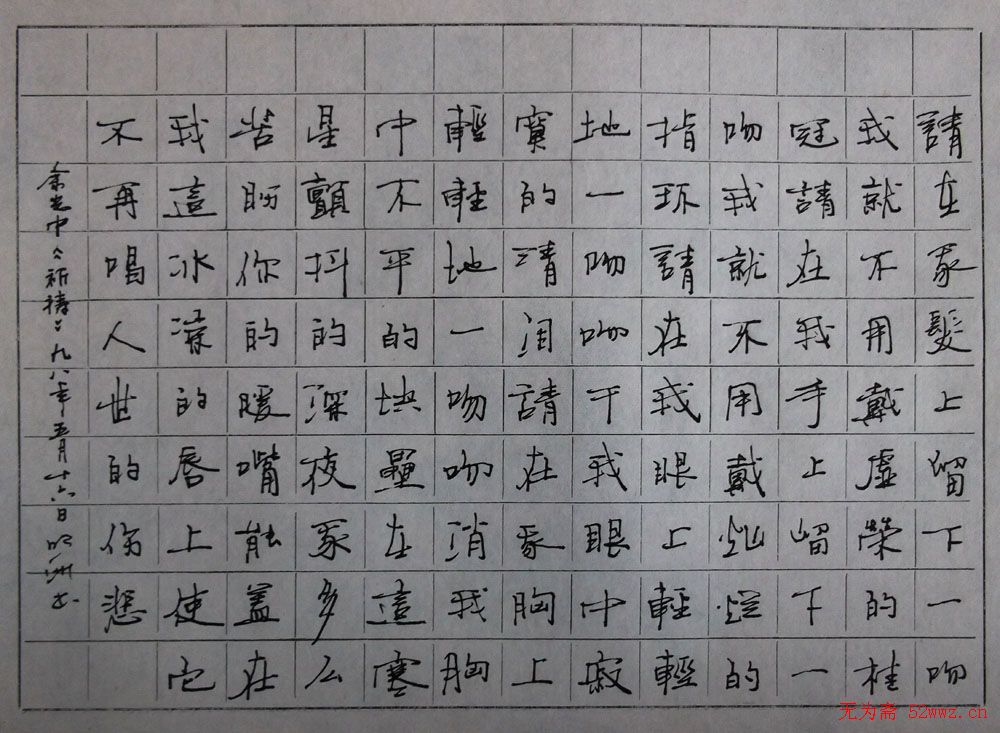 請在我髮上留下一吻
我就不用戴虛榮的桂
冠請在我手上留下一
吻我就不用戴灿爛的
指环請在我眼上輕輕
地一吻吻干我眼中寂
寞的清泪請在我胸上
輕輕地一吻吻消我胸
中不平的块壘在這寒
星顫抖的深夜我多么
苦盼你的暖嘴能蓋在
我這冰涼的唇上使它
不再喝人世的伤悲
余光中《祈禱》九八年五月十六日
无为斋 52wwz.cn